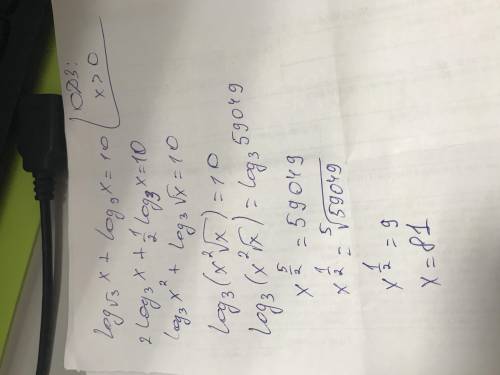 log_√3 x + log_9 x = 10
ОДЗ:
x > 0
2 log_3 x + 1/2 log_3 x = 10
log_3 x² + log_3 √x = 10
log_3 (x²√x) = 10
log_3 (x²√x) = log_3 59049
x^(5/2) = 59049
x^(1/2) = ⁵√59049
x^(1/2) = 9
x = 81